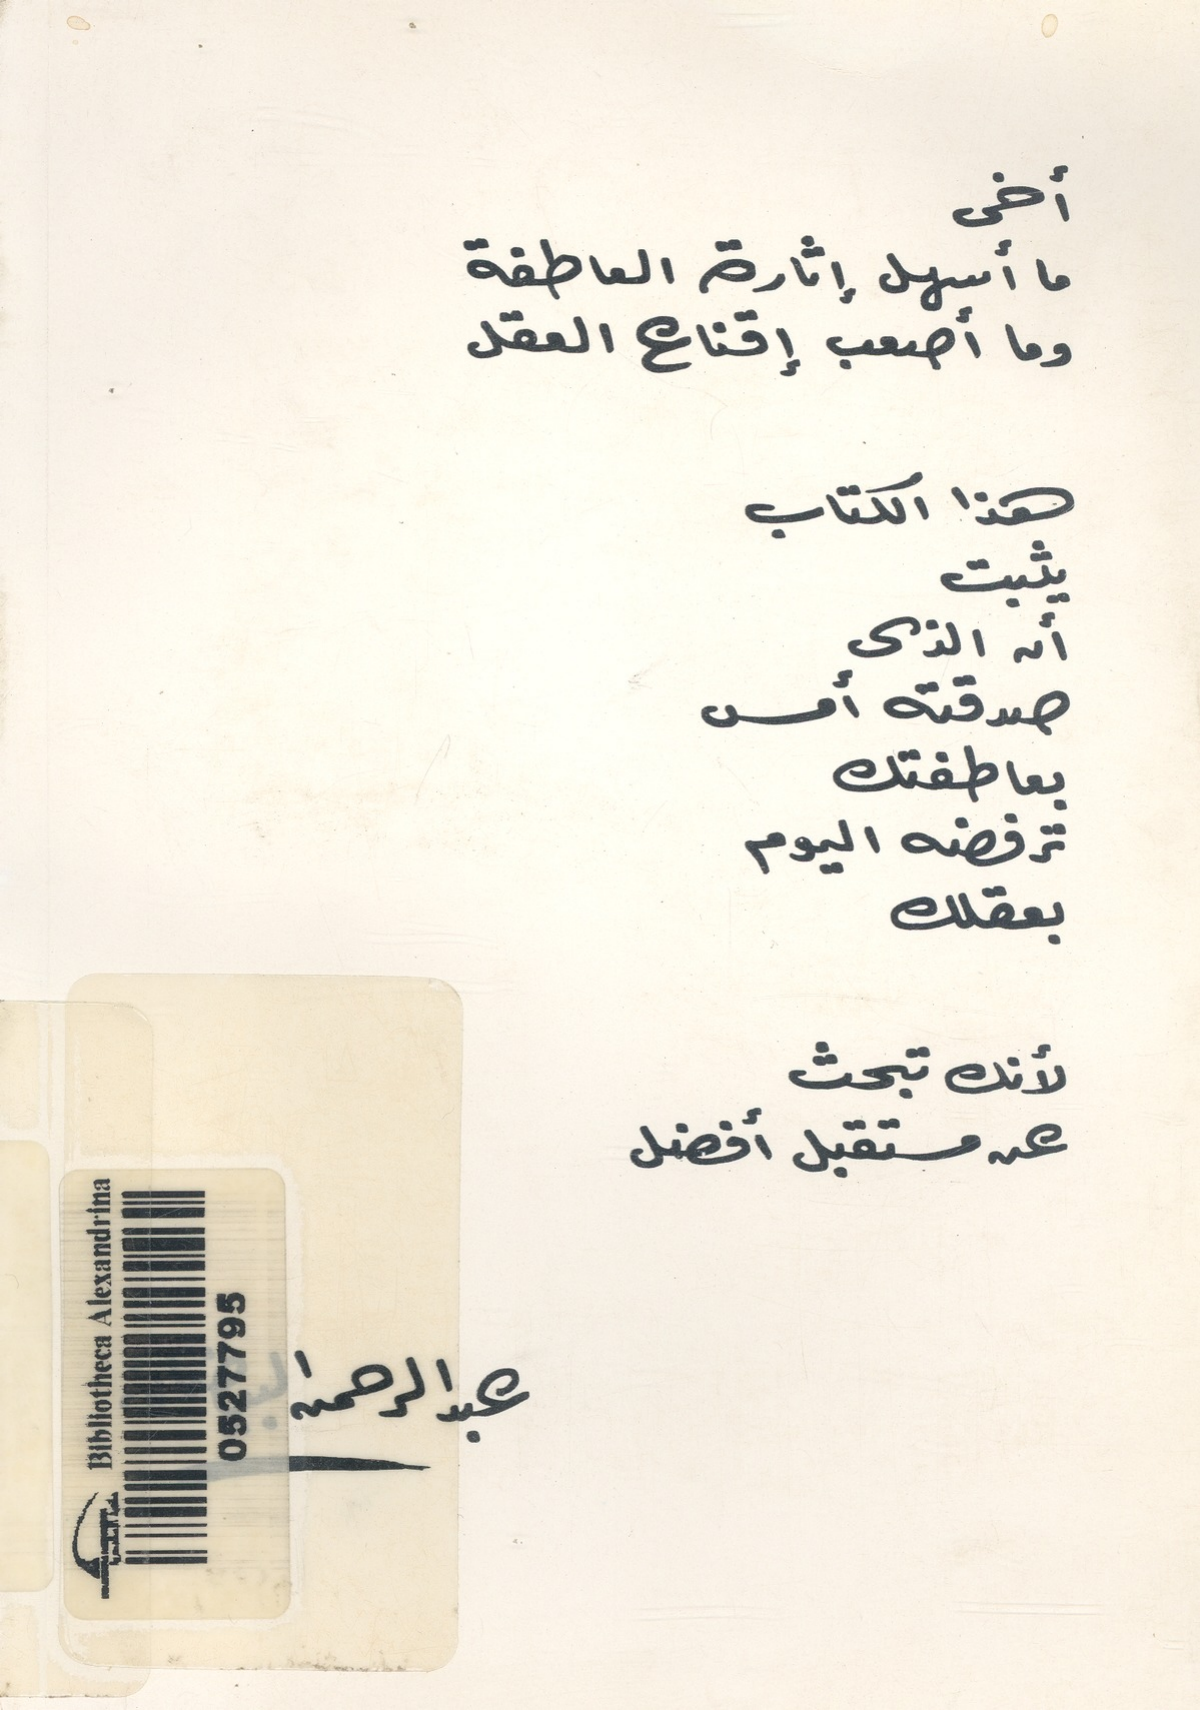 أخى
ما أسهل إثارة العاطفة
وما أصعب إقناع العقل
هذا الكتاب
يثبت
أن الذى
صدقته أمس
بعاطفتك
ترفضه اليوم
بعقلك
لأنك تبحث
عن مستقبل أفضل
عبد الرحمن
Bibliotheca Alexandrina
0527795